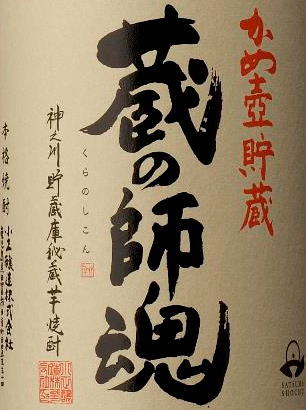 かめ壺貯蔵
蔵の師魂
くらのしこん
神之川貯蔵庫秘蔵芋焼酎
本格焼酎 小正醸造株式会社
SATSUMA
SHOCHU